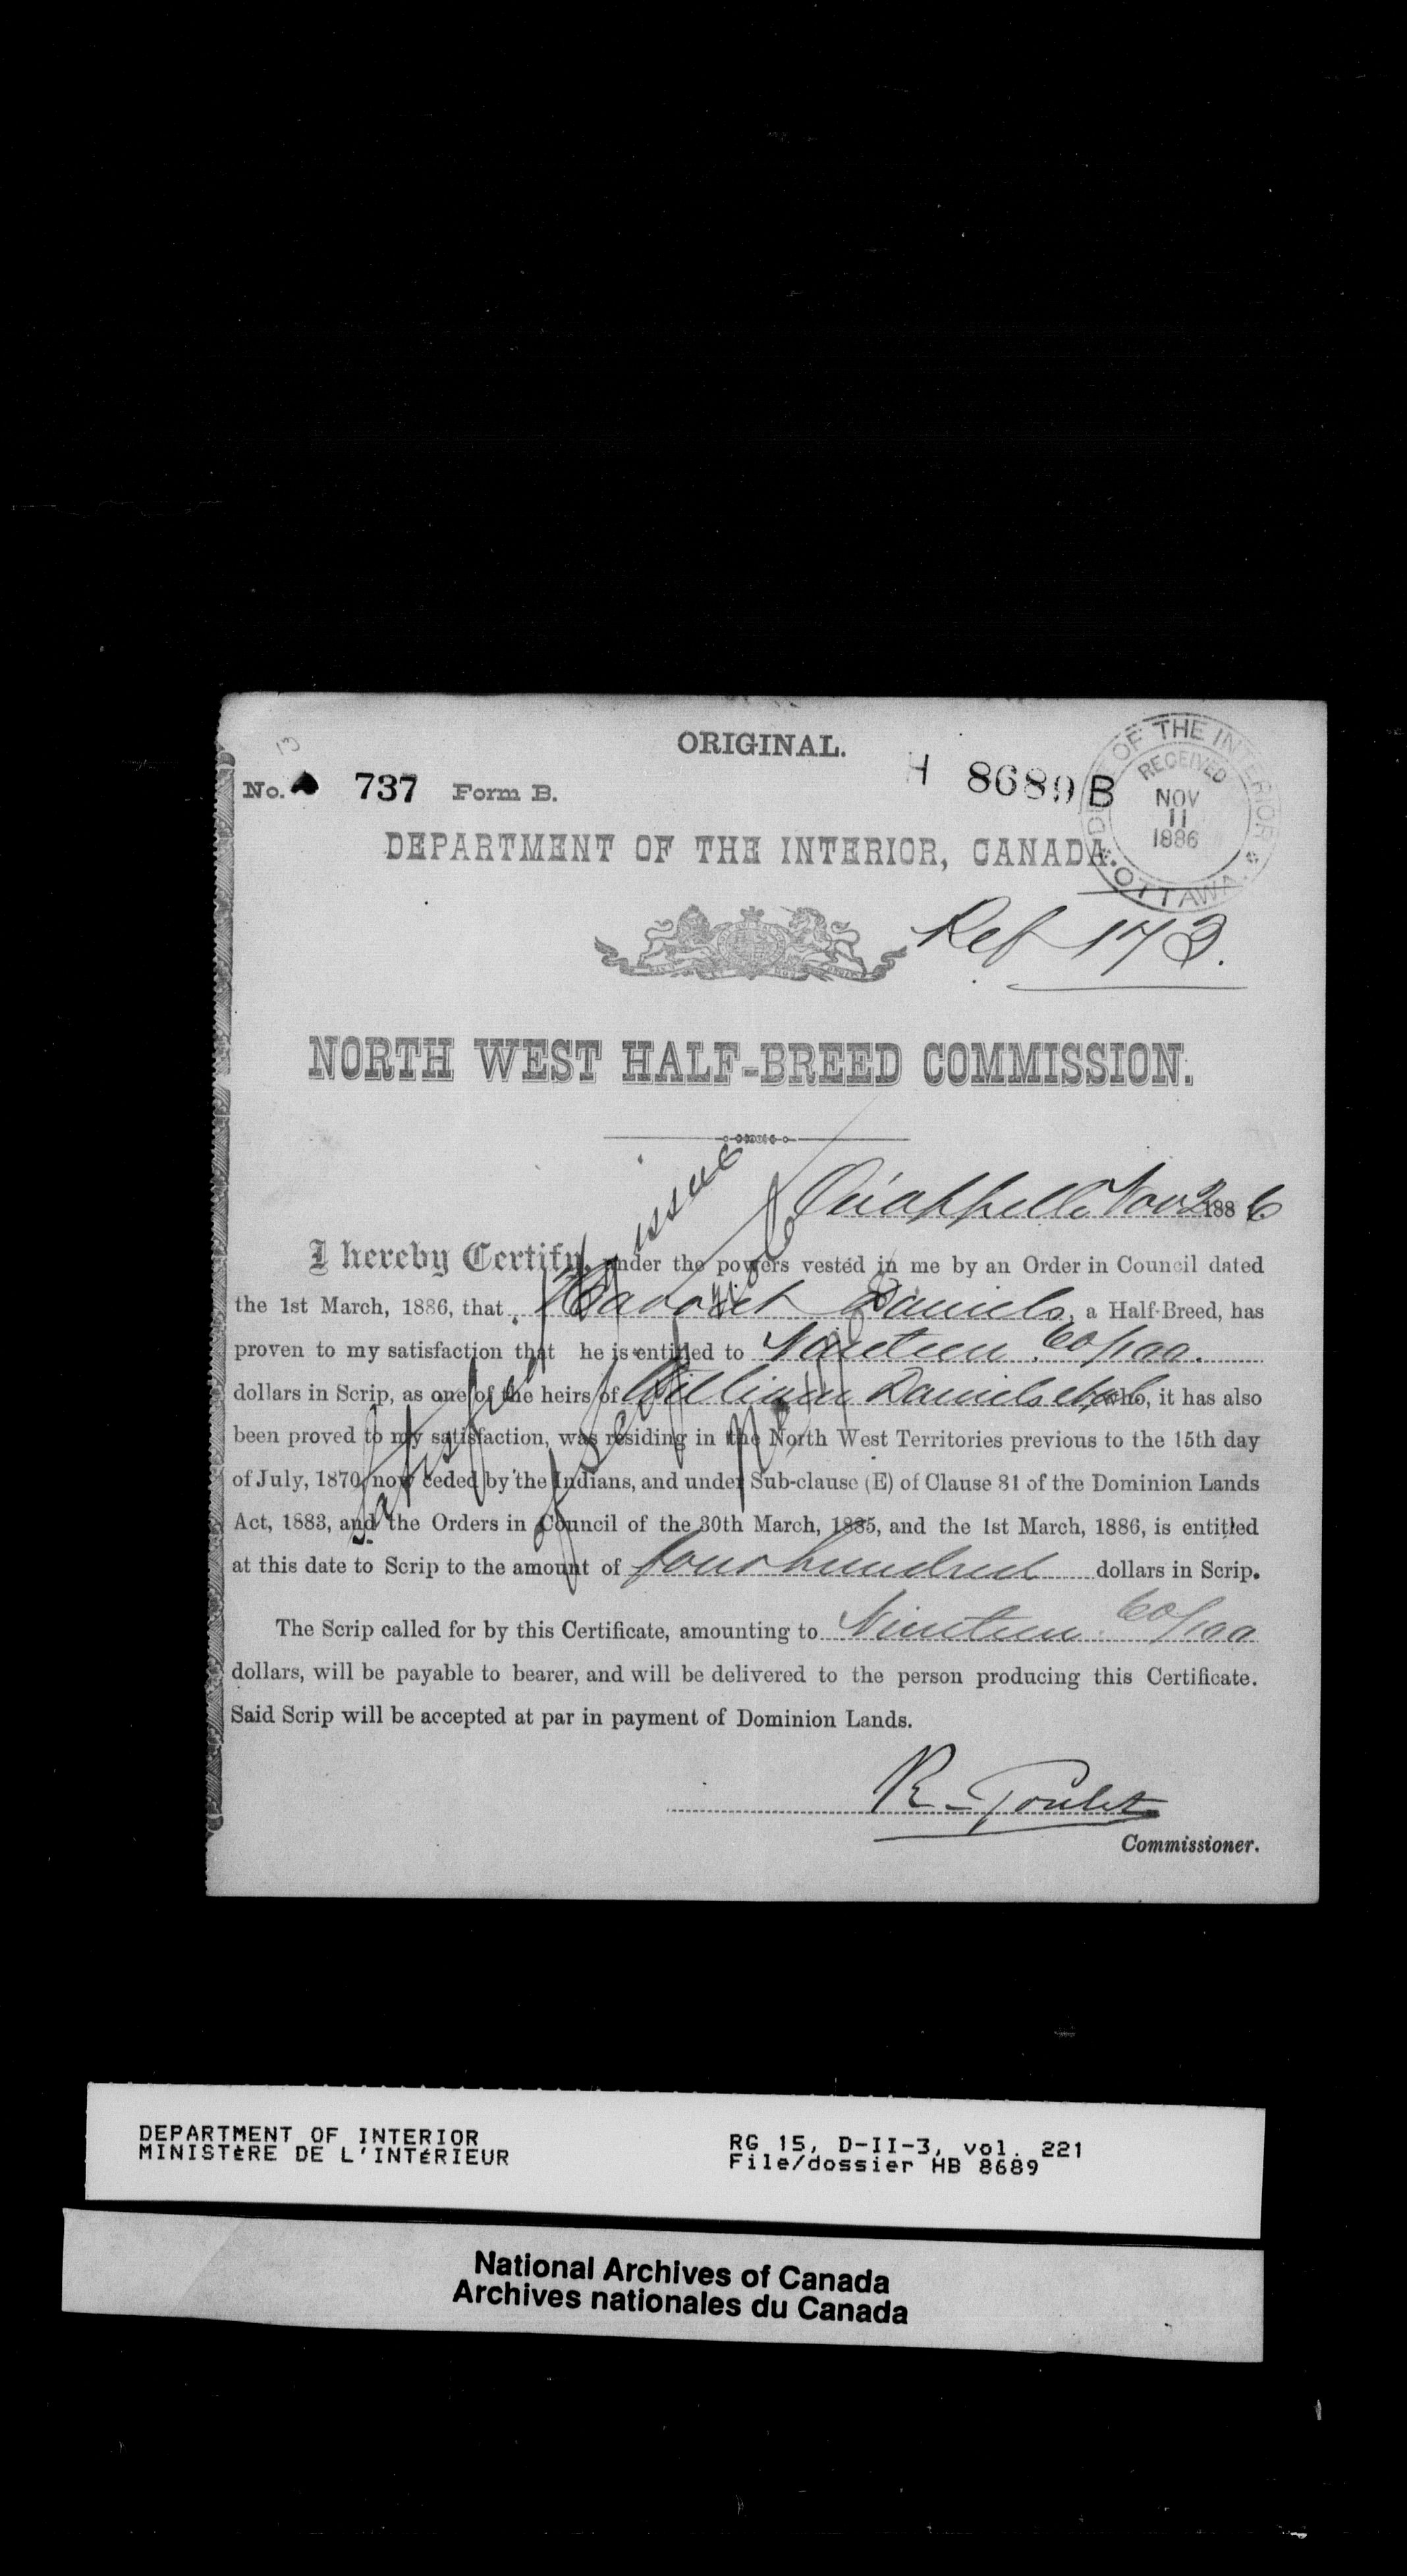 ORIGINAL.
13
No. 737 Form B.
H 8689 B
DEPT OF THE INTERIOR
RECEIVED
NOV
11
1886
OTTAWA
DEPARTMENT OF THE INTERIOR, CANADA.
Ref 173.
NORTH WEST HALF-BREED COMMISSION.
Qu'appelle Nov 2 1886
I hereby Certify, under the powers vested in me by an Order in Council dated
the 1st March, 1886, that Daniels, a Half-Breed, has
proven to my satisfaction that he is entitled to Nineteen 60/100.
dollars in Scrip, as one of the heirs of William Daniels who, it has also
been proved to my satisfaction, was residing in the North West Territories previous to the 15th day
of July, 1870, now ceded by the Indians, and under Sub-clause (E) of Clause 81 of the Dominion Lands
Act, 1883, and the Orders in Council of the 30th March, 1885, and the 1st March, 1886, is entitled
at this date to Scrip to the amount of four hundred dollars in Scrip.
The Scrip called for by this Certificate, amounting to Nineteen 60/100
dollars, will be payable to bearer, and will be delivered to the person producing this Certificate.
Said Scrip will be accepted at par in payment of Dominion Lands.
R. Goulet
Commissioner.
issue
DEPARTMENT OF INTERIOR
MINISTÈRE DE L'INTÉRIEUR
RG 15, D-II-3, vol. 221
File/dossier HB 8689
National Archives of Canada
Archives nationales du Canada